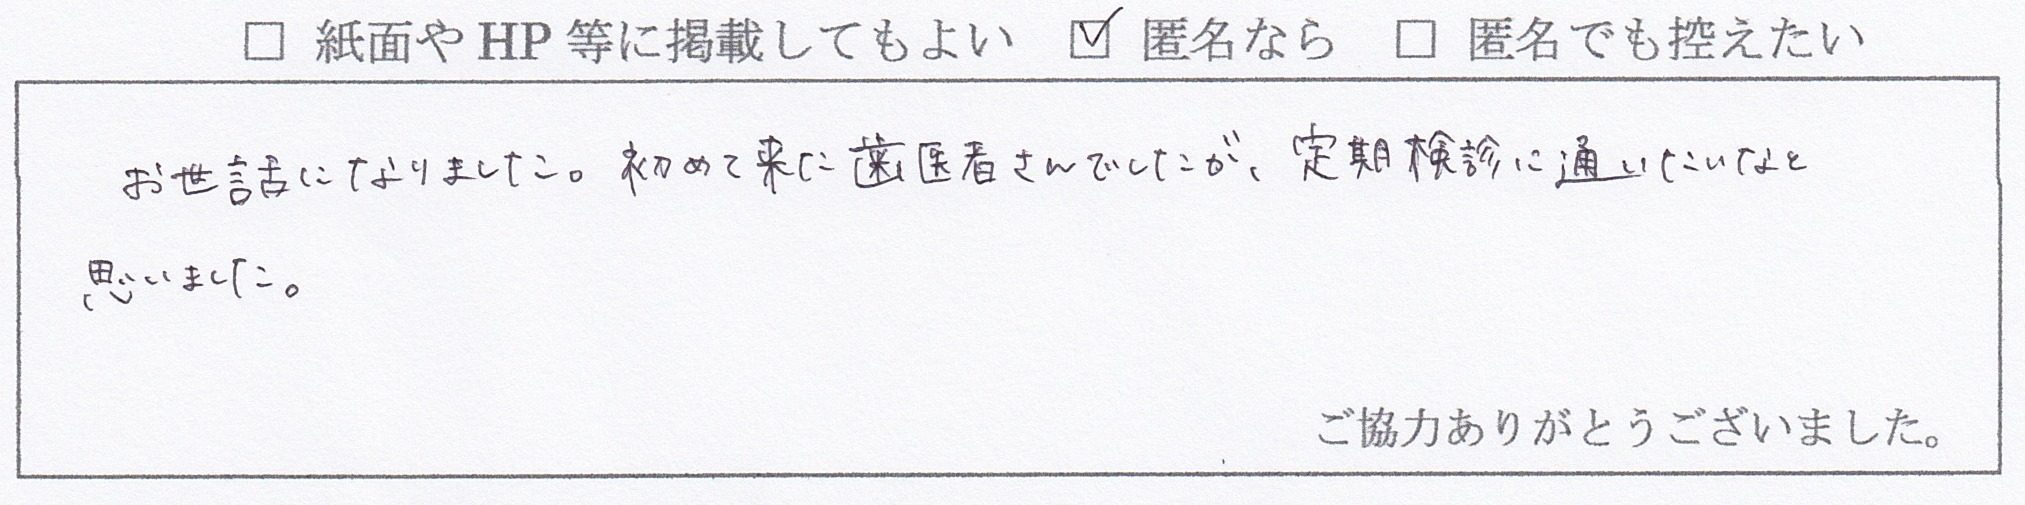 □ 紙面や HP 等に掲載してもよい ☑ 匿名なら □ 匿名でも控えたい
お世話になりました。初めて来た歯医者さんでしたが、定期検診に通いたいなと
思いました。
ご協力ありがとうございました。